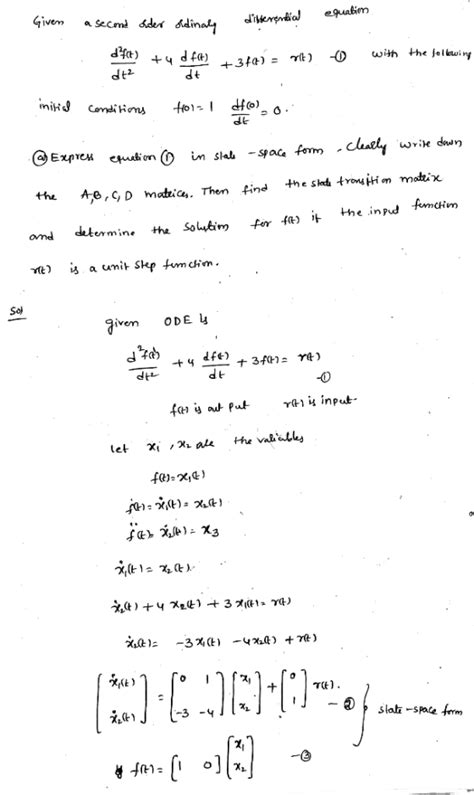 Given a second order ordinary differential equation
d²f(t)/dt² + 4 df(t)/dt + 3f(t) = r(t) -① with the following
initial conditions f(0)=1 df(0)/dt = 0.
ⓐ Express equation ① in state-space form, clearly write down
the A,B,C,D matrices. Then find the state transition matrix
and determine the solution for f(t) if the input function
r(t) is a unit step function.
Sol
given ODE is
d²f(t)/dt² + 4 df(t)/dt + 3f(t) = r(t) -①
f(t) is out put r(t) is input.
let x₁, x₂ are the variables
f(t) = x₁(t)
ḟ(t) = ẋ₁(t) = x₂(t)
f̈(t) = ẋ₂(t) = x₃
ẋ₁(t) = x₂(t).
ẋ₂(t) + 4 x₂(t) + 3 x₁(t) = r(t)
ẋ₂(t) = -3 x₁(t) - 4x₂(t) + r(t)
[ẋ₁(t) ẋ₂(t)] = [0 1 -3 -4] [x₁ x₂] + [0 1] r(t). -② } state-space form
f(t) = [1 0] [x₁ x₂] -③